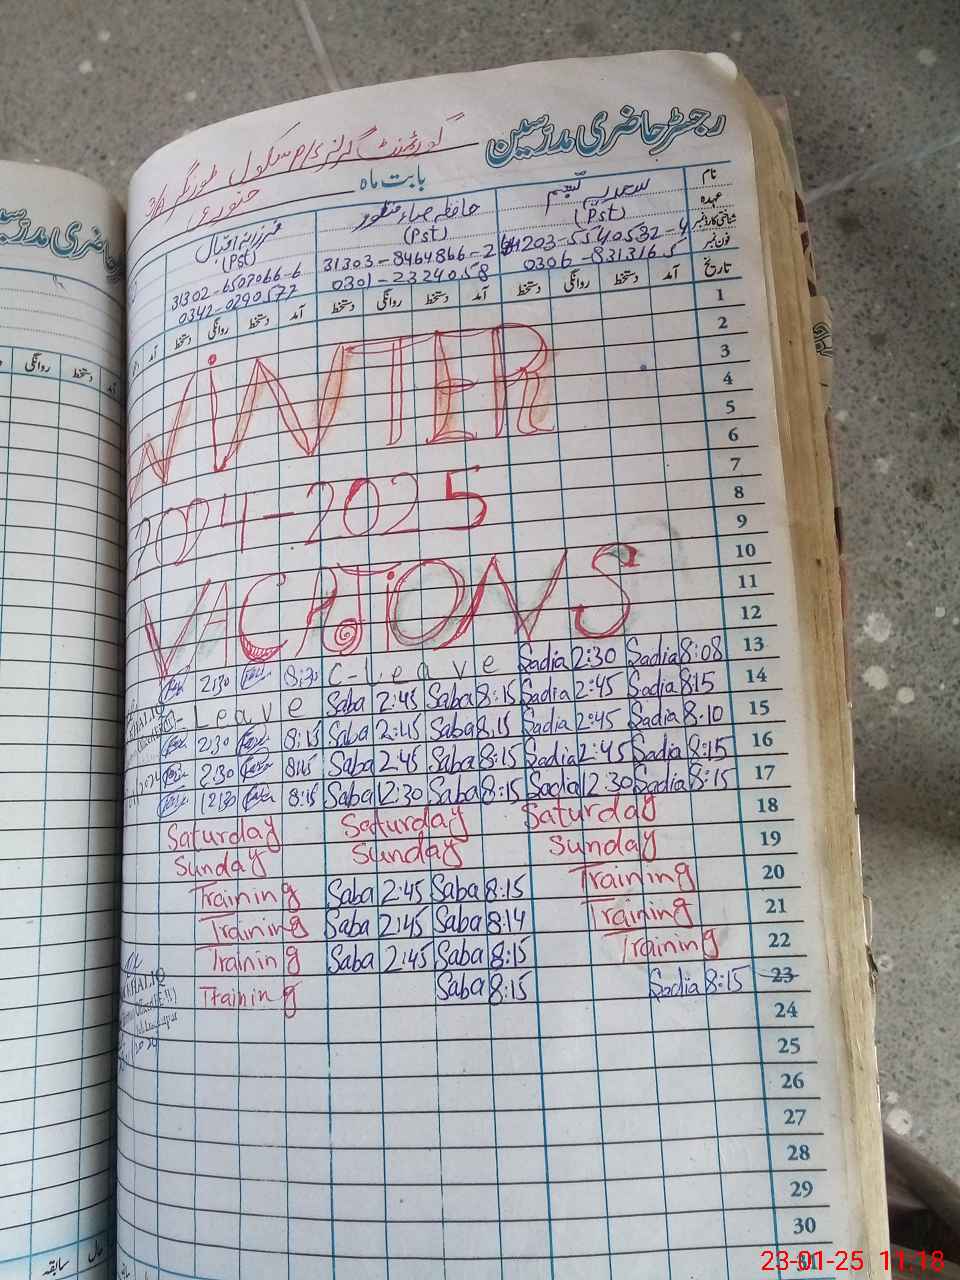 رجسٹر حاضری مدرسین گورنمنٹ گرلز سکول
بابت ماہ جنوری
نام سعدیہ تبسم حافظہ صباء منظور فرزانہ اقبال
عہدہ (Pst) (Pst) (Pst)
شناختی کارڈ نمبر 203-5540532-4 31303-8464866-2 31302-6507066-6
فون نمبر 0306-8313165 0301-2324058 0342-0290577
تاریخ آمد دستخط روانگی دستخط آمد دستخط روانگی دستخط آمد دستخط روانگی دستخط
1
2
3
WINTER 4
5
6
7
2024-2025 8
9
10
VACATIONS 11
12
2:30 8:30 C-Leave Sadia 2:30 Sadia 8:08 13
Leave Saba 2:45 Saba 8:15 Sadia 2:45 Sadia 8:15 14
2:30 8:15 Saba 2:45 Saba 8:15 Sadia 2:45 Sadia 8:10 15
2:30 8:15 Saba 2:45 Saba 8:15 Sadia 2:45 Sadia 8:15 16
12:30 8:15 Saba 12:30 Saba 8:15 Sadia 12:30 Sadia 8:15 17
Saturday Saturday Saturday 18
Sunday Sunday Sunday 19
Training Saba 2:45 Saba 8:15 Training 20
Training Saba 2:45 Saba 8:14 Training 21
Training Saba 2:45 Saba 8:15 Training 22
Training Saba 8:15 Sadia 8:15 23
24
25
26
27
28
29
30
31
حاضری مدرسین
روانگی دستخط
KHALIQ
سابقہ حال
23-01-25 11:18